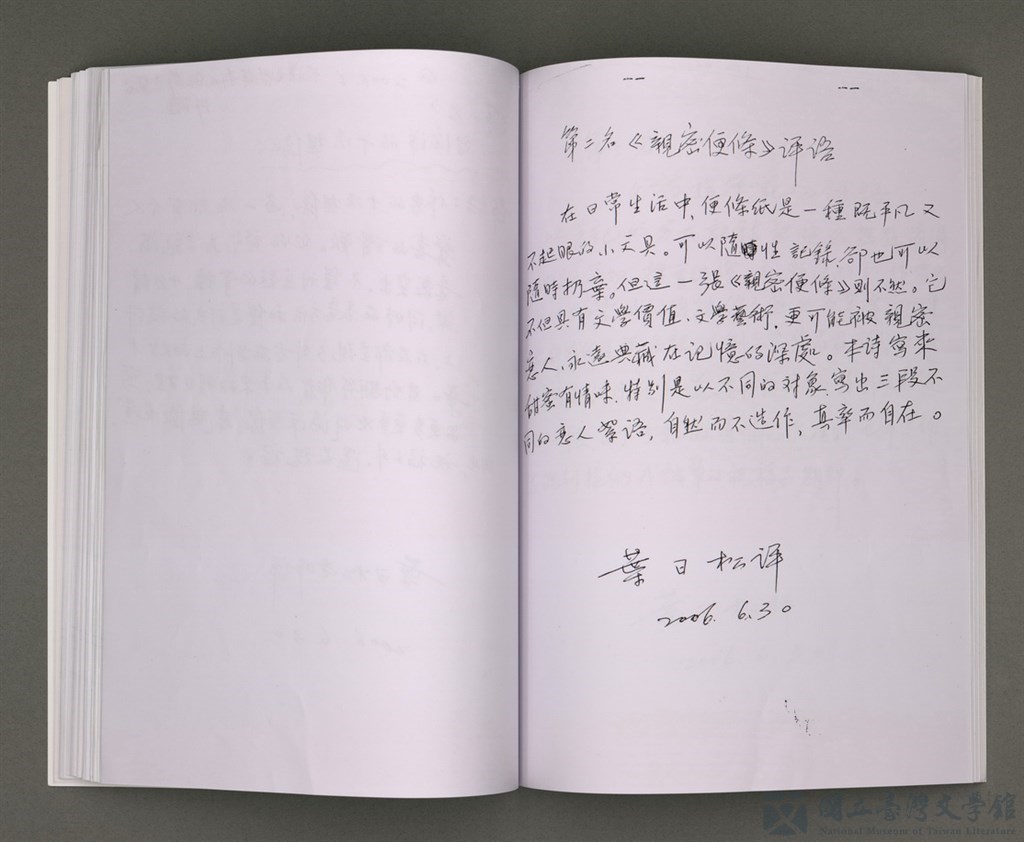 第二名《親密便條》評語
在日常生活中,便條紙是一種既平凡又
不起眼的小文具。可以隨性記錄,卻也可以
隨時扔棄。但這一張《親密便條》則不然。它
不但具有文學價值、文學藝術,更可能被親密
戀人,永遠典藏在記憶的深處。本詩寫來
甜蜜有情味,特別是以不同的对象,寫出三段不
同的戀人絮語,自然而不造作,真率而自在。
葉日松評
2006. 6.30
國立臺灣文學館
National Museum of Taiwan Literature